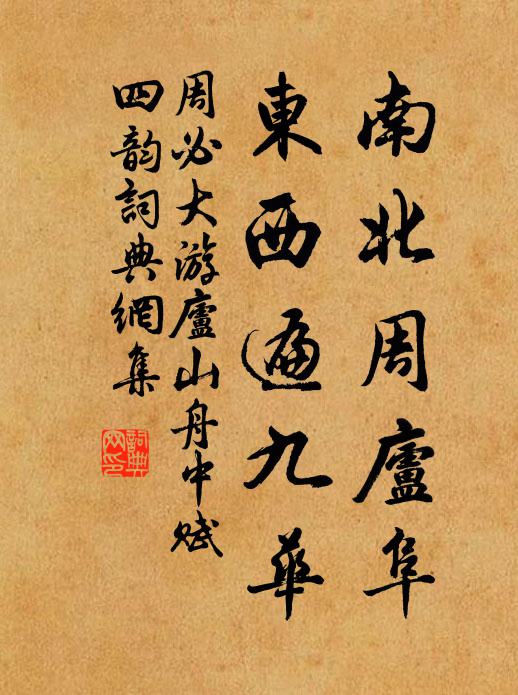 南北周廬阜
東西遍九華
周必大游廬山舟中賦
四韵詞典網集
詞典網印